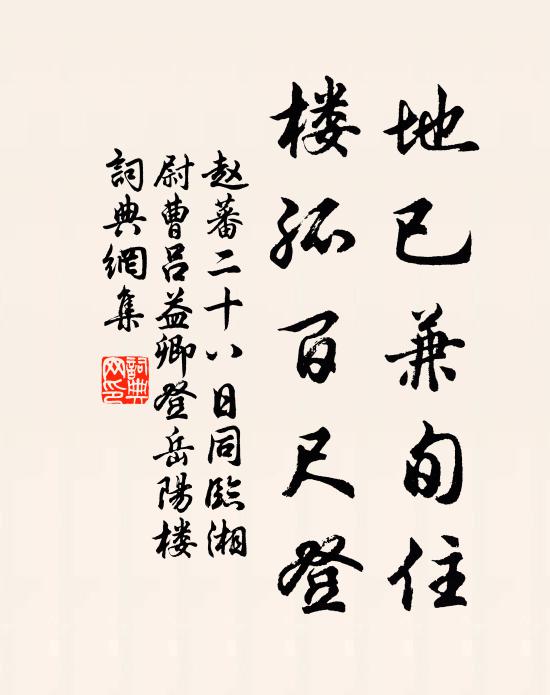 地已兼旬住
楼孤百尺登
赵蕃二十八日同临湘
尉曹吕益卿登岳陽楼
詞典網集
詞典網印